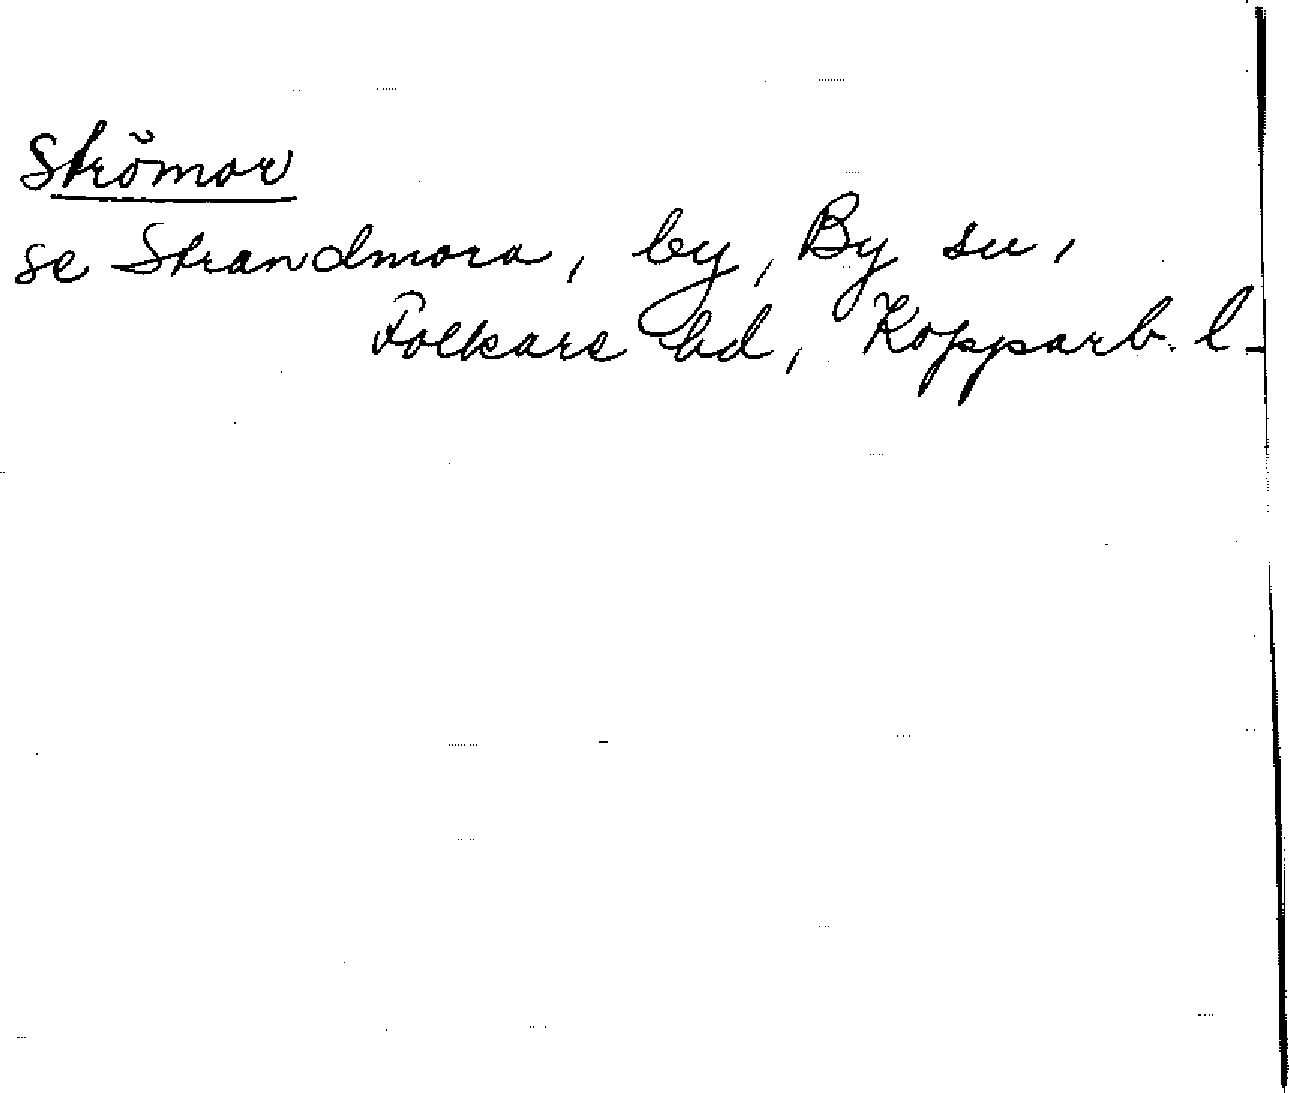 Strömor
se Strandmora, by, By sn,
Folkare hd, Kopparb. l.